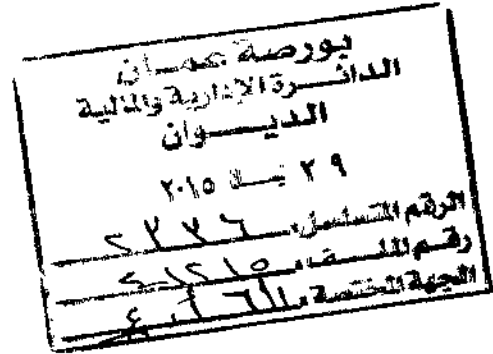 بورصة عمان
الدائرة الإدارية والمالية
الديوان
٢٩ نيسان ٢٠١٥
الرقم المتسلسل:
رقم الملف:
الجهة المختصة: